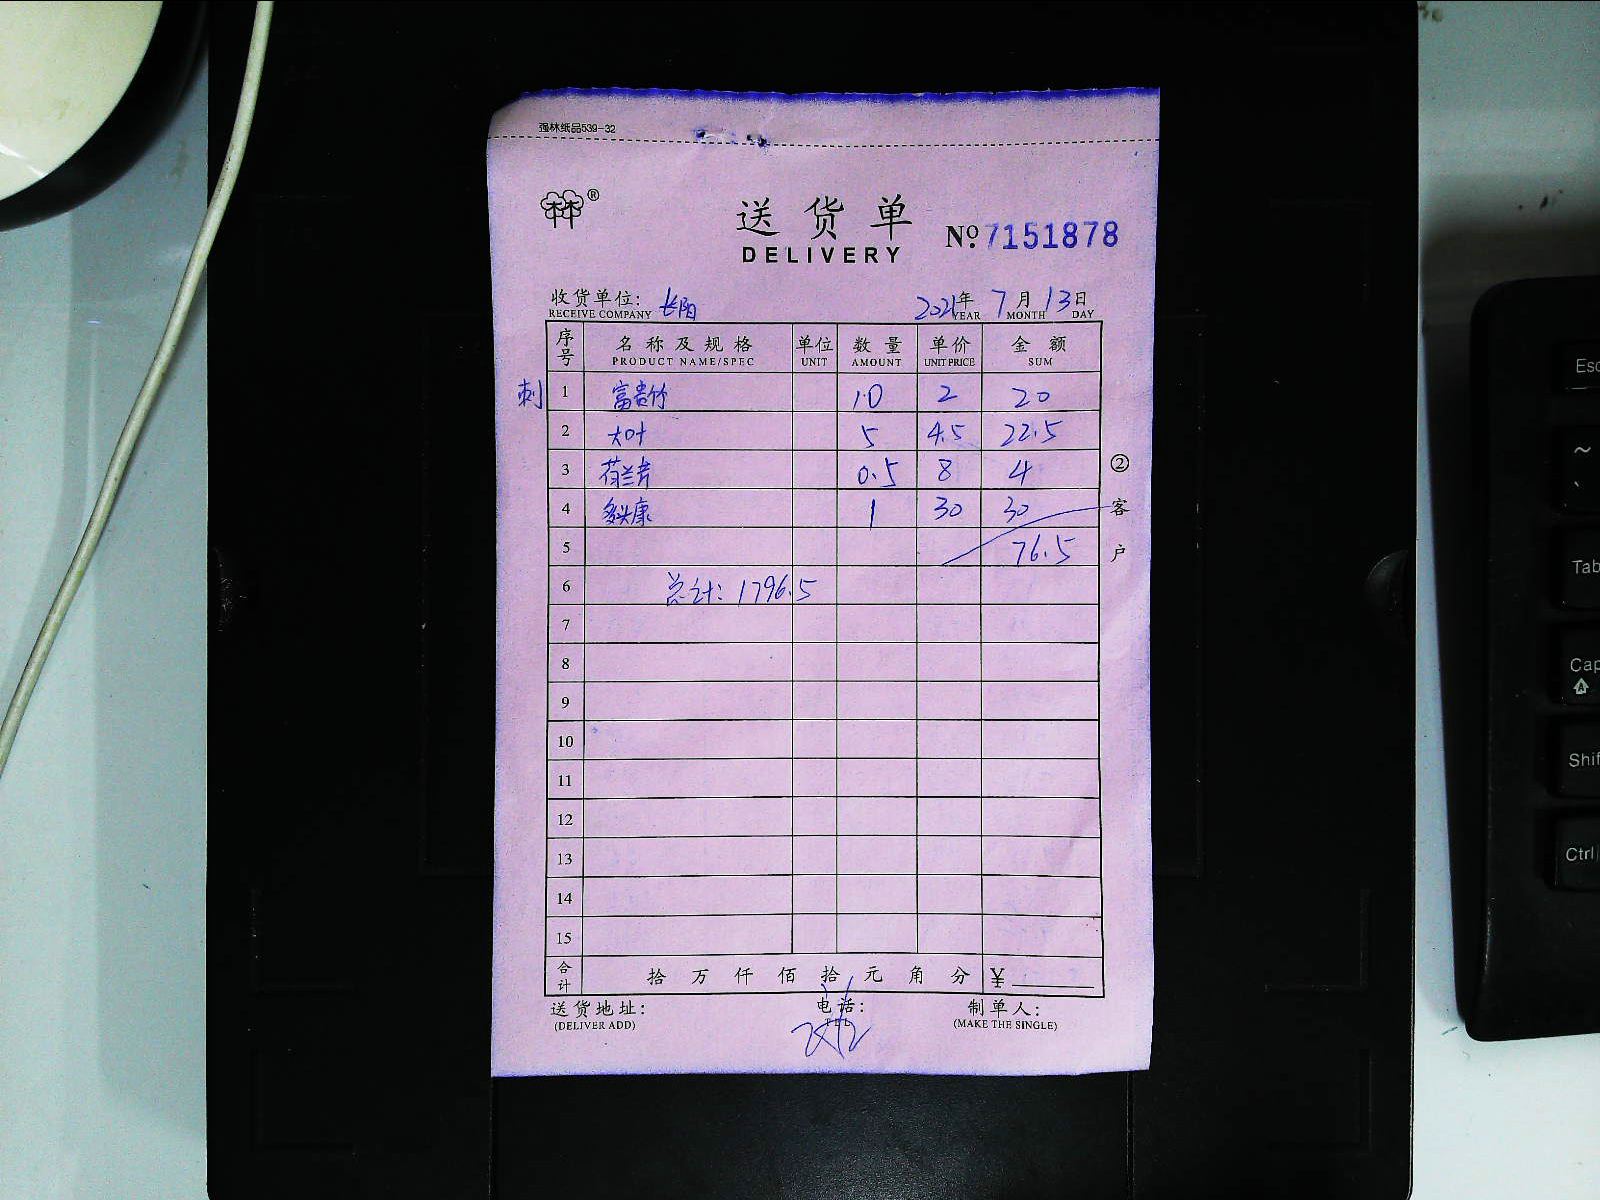 强林纸品539-32
林®
送货单
DELIVERY
№ 7151878
收货单位: 长阳 2021年 7月 13日
RECEIVE COMPANY YEAR MONTH DAY
序号 名称及规格 单位 数量 单价 金额
PRODUCT NAME/SPEC UNIT AMOUNT UNIT PRICE SUM
刺 1 富贵竹 10 2 20
2 大叶 5 4.5 22.5
3 荷兰青 0.5 8 4
4 多头康 1 30 30
5 76.5
6 总计: 1796.5
7
8
9
10
11
12
13
14
15
合计 拾 万 仟 佰 拾 元 角 分 ¥
②客户
送货地址: 电话: 制单人:
(DELIVER ADD) TEL (MAKE THE SINGLE)
Esc
~
、
Tab
Cap
Shif
Ctrl